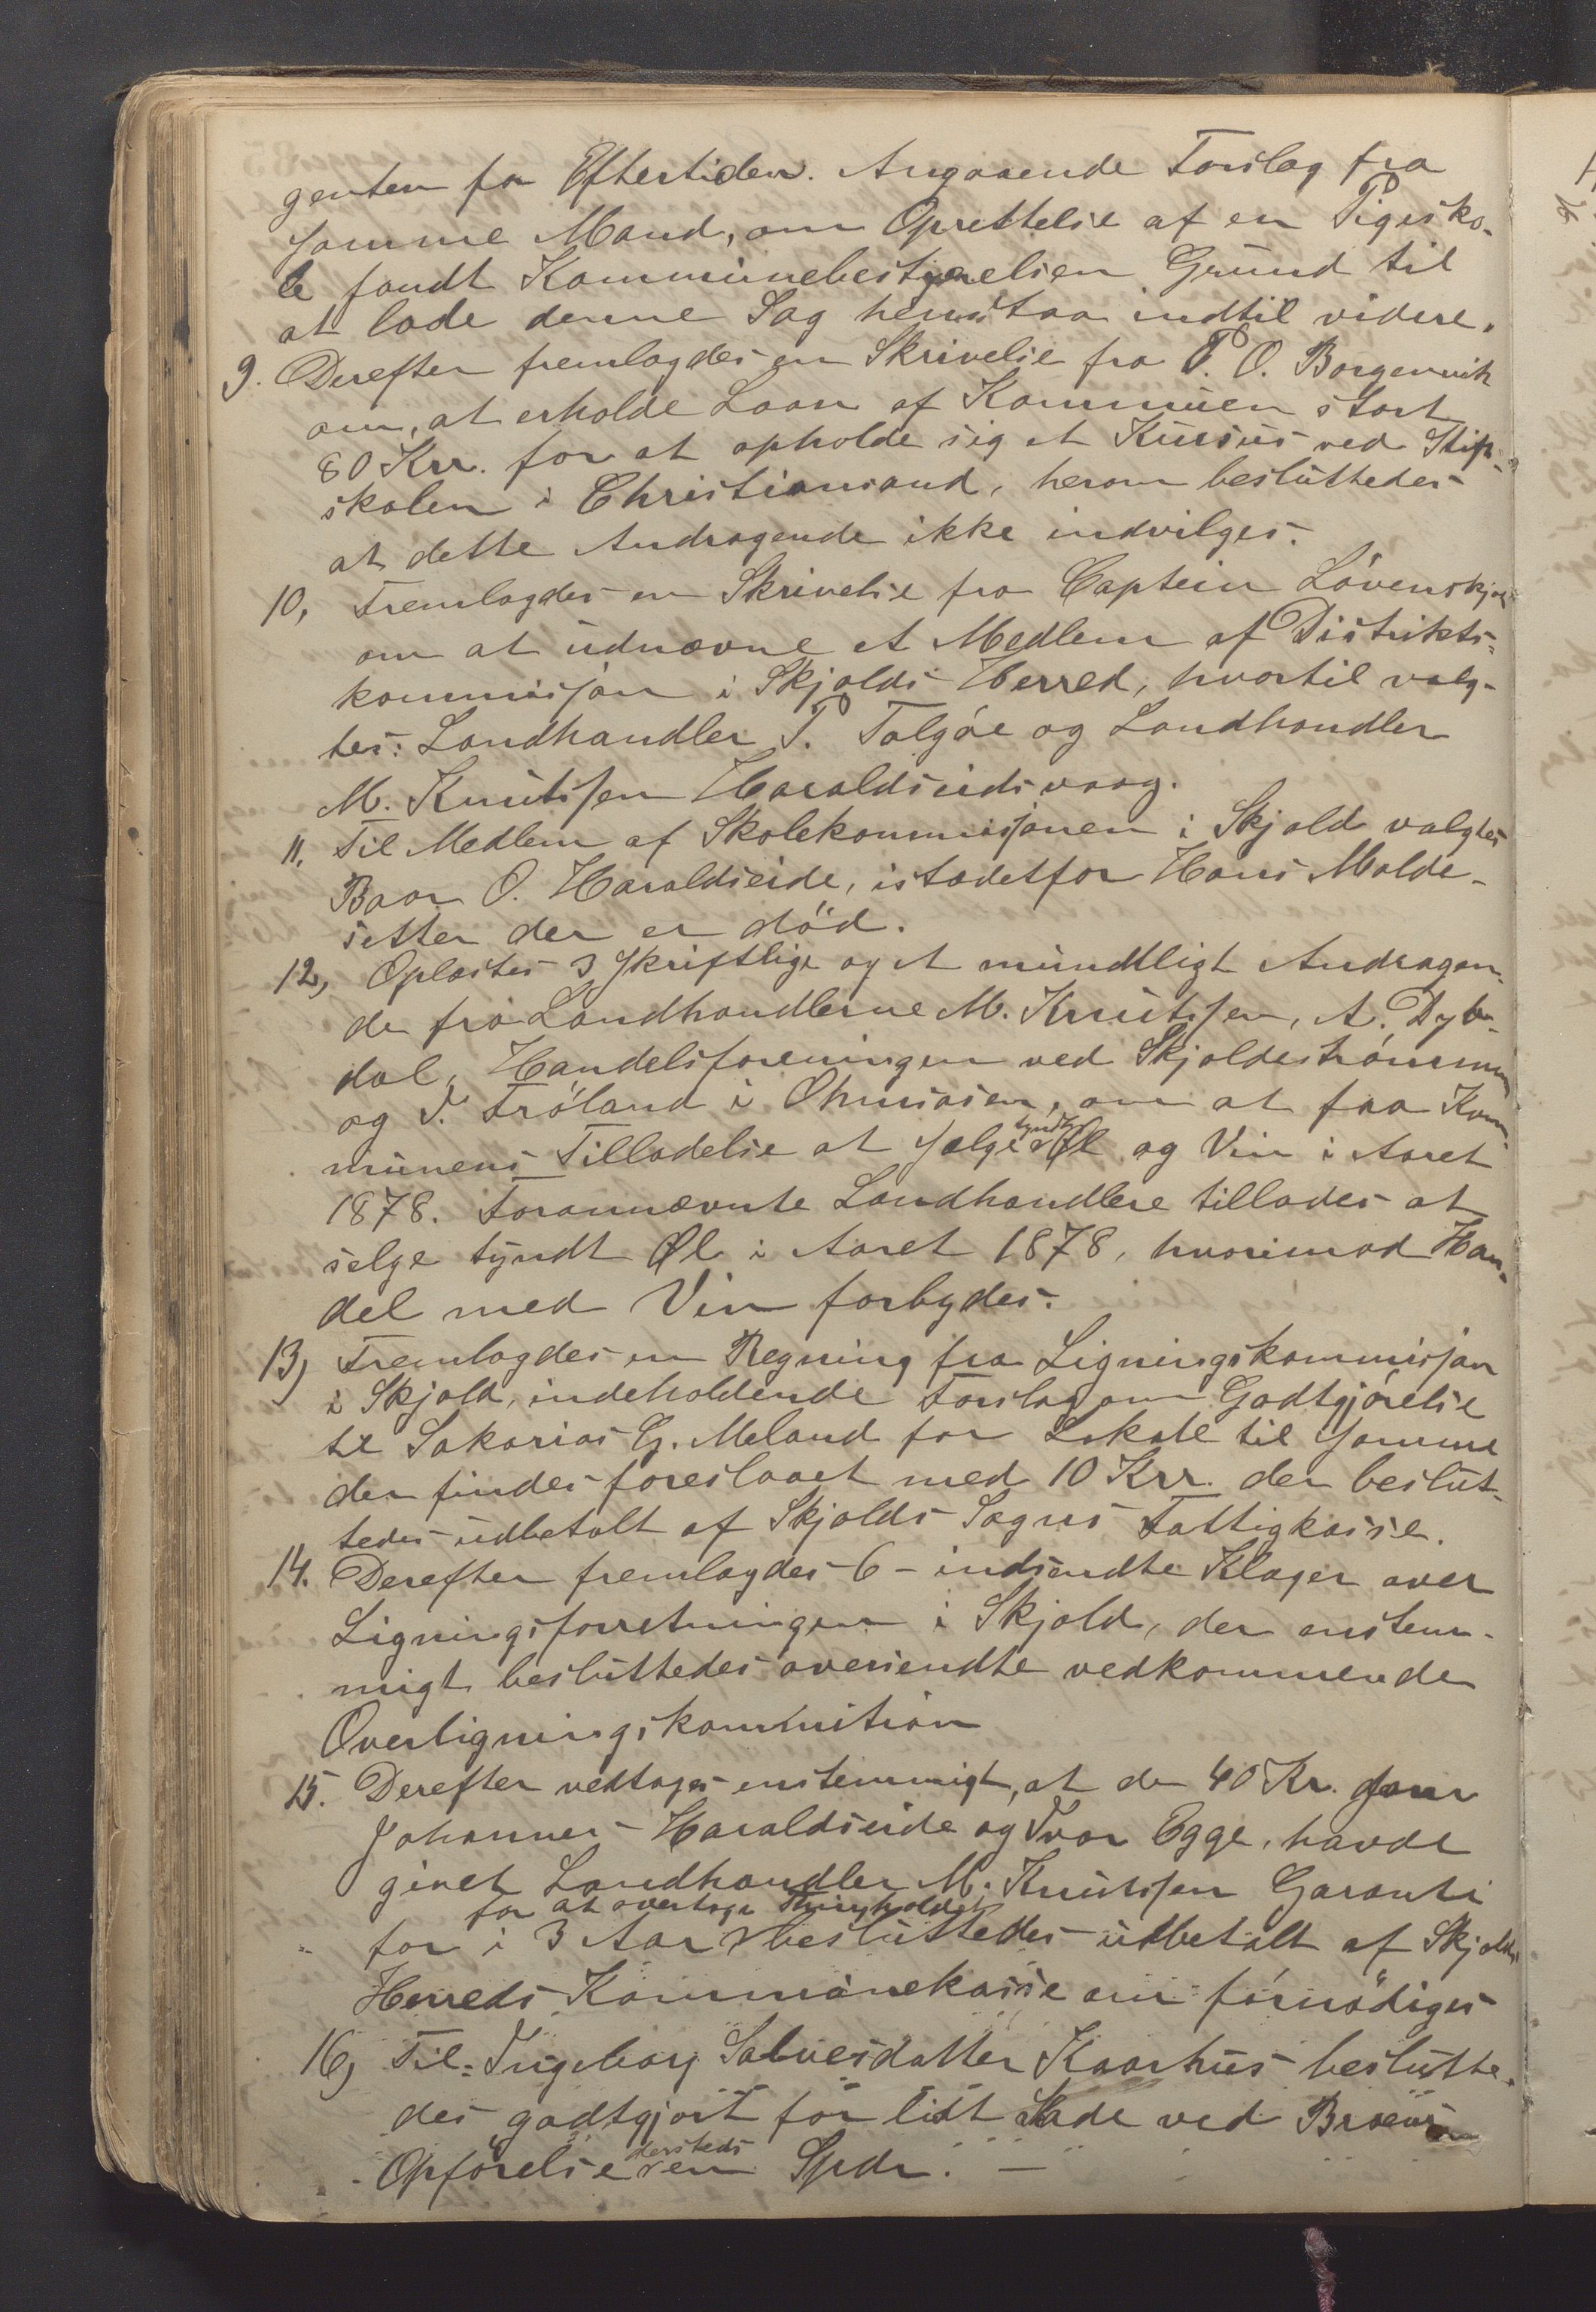 genten for Eftertiden. Angaaende Forslag fra
samme Mand, om Oprettelse af en Pigesko-
le fandt Kommunebestyrelsen Grund til
at lade denne Sag henstaa indtil videre.
9. Derefter fremlagdes en Skrivelse fra P. O. Borgenvik
om, at erholde Laan af Kommuen stort
80 Krr. for at opholde sig et Kursus ved Stifts-
skolen i Christiansand, herom besluttedes
at dette Andragende ikke indvilges.
10, Fremlagdes en Skrivelse fra Captein Lövenskjol
om at udnævne et Medlem af Distrikts-
kommisjon i Skjolds Herred, hvortil valg-
tes: Landhandler T. Tolgöe og Landhandler
M. Knutssen Haraldseidsvaag.
11. Til Medlem af Skolekommisjonen i Skjold valgtes
Baar O. Haraldseide, istadetfor Hans Molde-
setter der er död.
12, Oplæstes 3 skriftlige og et mundtligt Andragen-
de fra Landhandlerne M. Knutssen, A. Dybe-
dal, Handelsforeningen ved Skjoldeströmmen
og T. Fröland i Ohmsosen, om at faa Kom-
munens Tilladelse at sælge tyndt Øl og Vin i Aaret
1878. Forannævnte Landhandlere tillades at
selge tyndt Øl i Aaret 1878, hvorimod Han-
del med Vin forbydes.
13) Fremlagdes en Regning fra Ligningskommisjon
i Skjold, indeholdende Forslag om Godtgjörelse
til Sakarias G. Meland for Lokale til samme
der findes foreslaaet med 10 Krr. der beslut-
tedes udbetalt af Skjolds Sogns Fattigkasse.
14. Derefter fremlagdes 6 - indsendte Klager over
Ligningsforretningen i Skjold, der enstem-
migt besluttedes oversendte vedkommende
Overligningskommition
15. Derefter vedtoges enstemmigt, at de 40 Kr. som
Johannes Haraldseide og Ivar Egge, havde
givet Landhandler M. Knutssen Garanti
for at overtage Thinghold
for i 3 Aar besluttedes udbetalt af Skjolds
Herreds Kommunekasse om fornödiges
16) Til Ingeborg Salvesdatter Kaarhus beslutte-
des godtgjort for lidt Skade ved Broens
Opförelse dersteds en Spdr. —